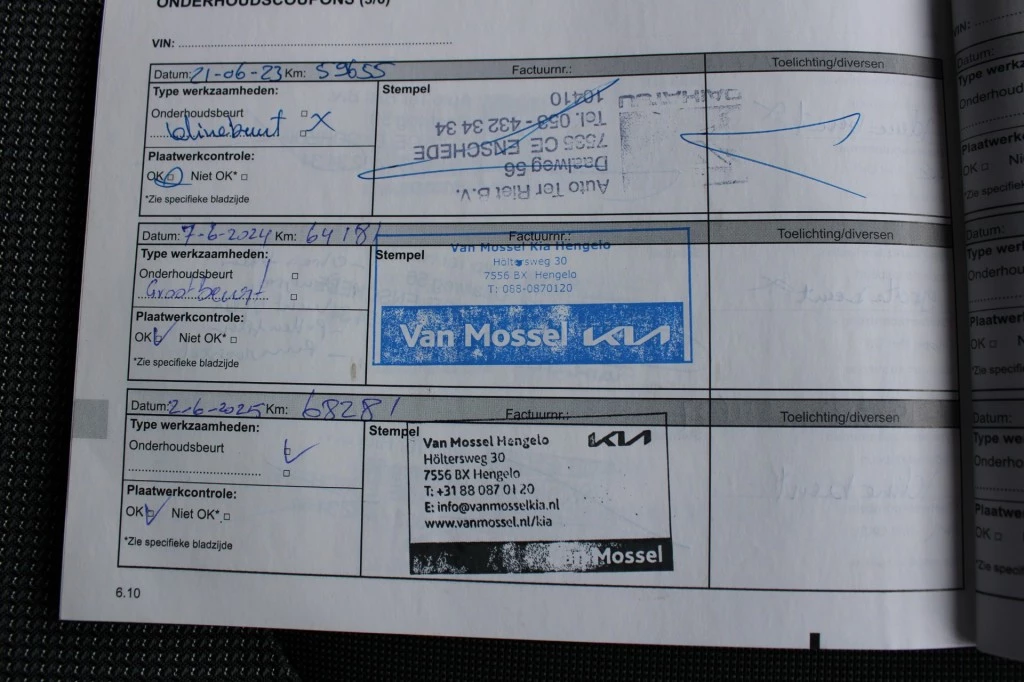 ONDERHOUDSCOUPONS (5/6)
VIN:
Datum: 21-06-23 Km: 59655 Factuurnr.: Toelichting/diversen
Type werkzaamheden:
Stempel
Onderhoudsbeurt
X
Plaatwerkcontrole:
OK Niet OK*
*Zie specifieke bladzijde
Auto Ter Riet B.V.
Daalweg 56
7535 CE ENSCHEDE
Tel. 053 - 432 34 34
10410
DAIHATSU
Datum: 7-6-2024 Km: 64181 Factuurnr.: Toelichting/diversen
Type werkzaamheden:
Stempel
Onderhoudsbeurt
Grootbeurt
Plaatwerkcontrole:
OK Niet OK*
*Zie specifieke bladzijde
Van Mossel Kia Hengelo
Höltersweg 30
7556 BX Hengelo
T: 088-0870120
Van Mossel KIA
Datum: 2-6-2025 Km: 68281 Factuurnr.: Toelichting/diversen
Type werkzaamheden:
Stempel
Onderhoudsbeurt
Plaatwerkcontrole:
OK Niet OK*
*Zie specifieke bladzijde
Van Mossel Hengelo KIA
Höltersweg 30
7556 BX Hengelo
T: +31 88 087 01 20
E: info@vanmosselkia.nl
www.vanmossel.nl/kia
Van Mossel
6.10